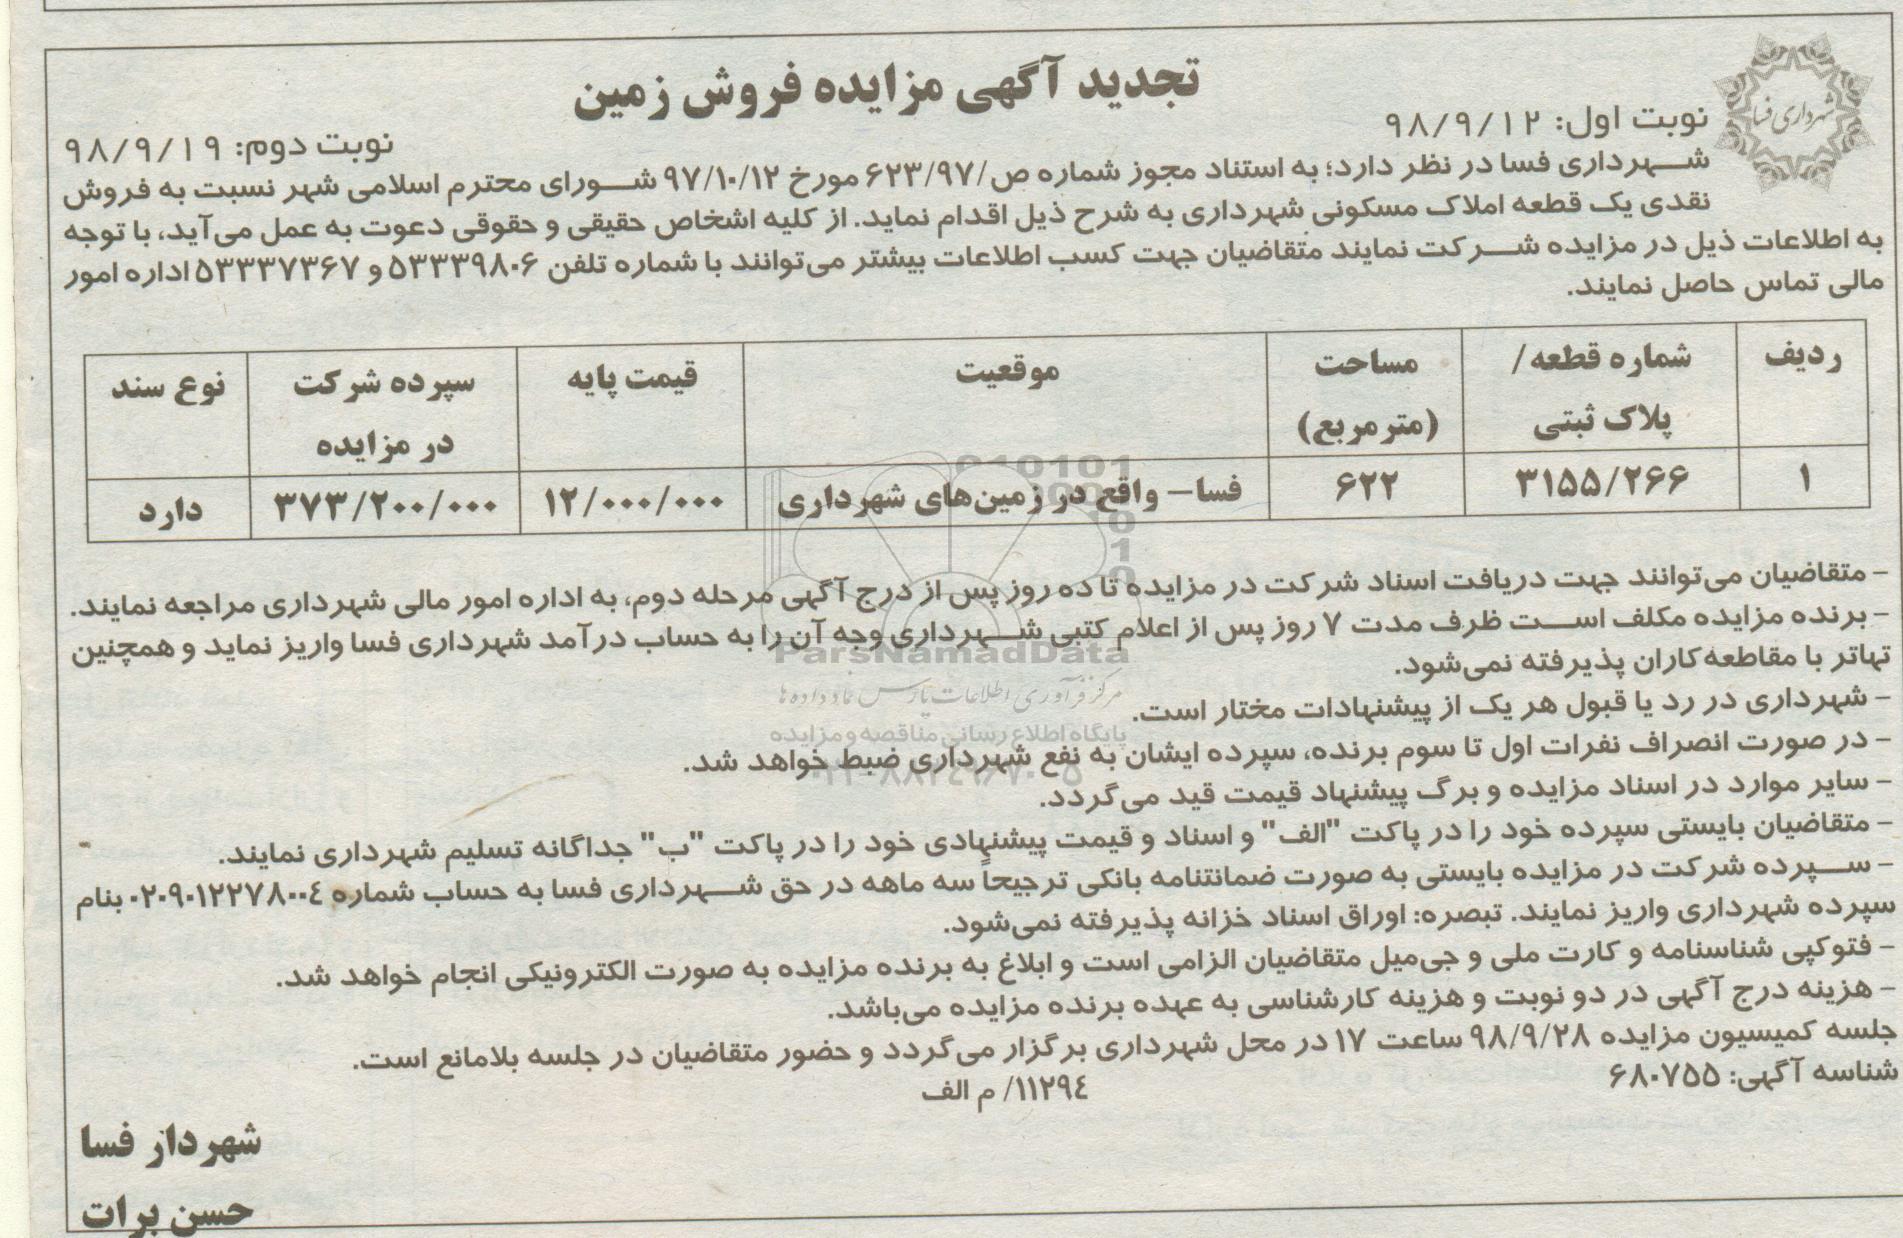 تجدید آگهی مزایده فروش زمین
شهرداری فسا
نوبت اول: ۹۸/۹/۱۲
نوبت دوم: ۹۸/۹/۱۹
شهرداری فسا در نظر دارد؛ به استناد مجوز شماره ص/۶۲۳/۹۷ مورخ ۹۷/۱۰/۱۲ شورای محترم اسلامی شهر نسبت به فروش
نقدی یک قطعه املاک مسکونی شهرداری به شرح ذیل اقدام نماید. از کلیه اشخاص حقیقی و حقوقی دعوت به عمل می‌آید، با توجه
به اطلاعات ذیل در مزایده شرکت نمایند متقاضیان جهت کسب اطلاعات بیشتر می‌توانند با شماره تلفن ۵۳۳۳۹۸۰۶ و ۵۳۳۳۷۳۶۷ اداره امور
مالی تماس حاصل نمایند.
ردیف | شماره قطعه/ پلاک ثبتی | مساحت (مترمربع) | موقعیت | قیمت پایه | سپرده شرکت در مزایده | نوع سند
۱ | ۳۱۵۵/۲۶۶ | ۶۲۲ | فسا– واقع در زمین‌های شهرداری | ۱۲/۰۰۰/۰۰۰ | ۳۷۳/۲۰۰/۰۰۰ | دارد
– متقاضیان می‌توانند جهت دریافت اسناد شرکت در مزایده تا ده روز پس از درج آگهی مرحله دوم، به اداره امور مالی شهرداری مراجعه نمایند.
– برنده مزایده مکلف است ظرف مدت ۷ روز پس از اعلام کتبی شهرداری وجه آن را به حساب درآمد شهرداری فسا واریز نماید و همچنین
تهاتر با مقاطعه‌کاران پذیرفته نمی‌شود.
– شهرداری در رد یا قبول هر یک از پیشنهادات مختار است.
– در صورت انصراف نفرات اول تا سوم برنده، سپرده ایشان به نفع شهرداری ضبط خواهد شد.
– سایر موارد در اسناد مزایده و برگ پیشنهاد قیمت قید می‌گردد.
– متقاضیان بایستی سپرده خود را در پاکت "الف" و اسناد و قیمت پیشنهادی خود را در پاکت "ب" جداگانه تسلیم شهرداری نمایند.
– سپرده شرکت در مزایده بایستی به صورت ضمانتنامه بانکی ترجیحاً سه ماهه در حق شهرداری فسا به حساب شماره ۰۲۰۹۰۱۲۲۷۸۰۰۴ بنام
سپرده شهرداری واریز نمایند. تبصره: اوراق اسناد خزانه پذیرفته نمی‌شود.
– فتوکپی شناسنامه و کارت ملی و جی‌میل متقاضیان الزامی است و ابلاغ به برنده مزایده به صورت الکترونیکی انجام خواهد شد.
– هزینه درج آگهی در دو نوبت و هزینه کارشناسی به عهده برنده مزایده می‌باشد.
جلسه کمیسیون مزایده ۹۸/۹/۲۸ ساعت ۱۷ در محل شهرداری برگزار می‌گردد و حضور متقاضیان در جلسه بلامانع است.
شناسه آگهی: ۶۸۰۷۵۵
۱۱۲۹۴/ م الف
شهردار فسا
حسن برات
ParsNamadData
مرکز فرآوری اطلاعات پارس نماد داده ها
پایگاه اطلاع رسانی مناقصه و مزایده